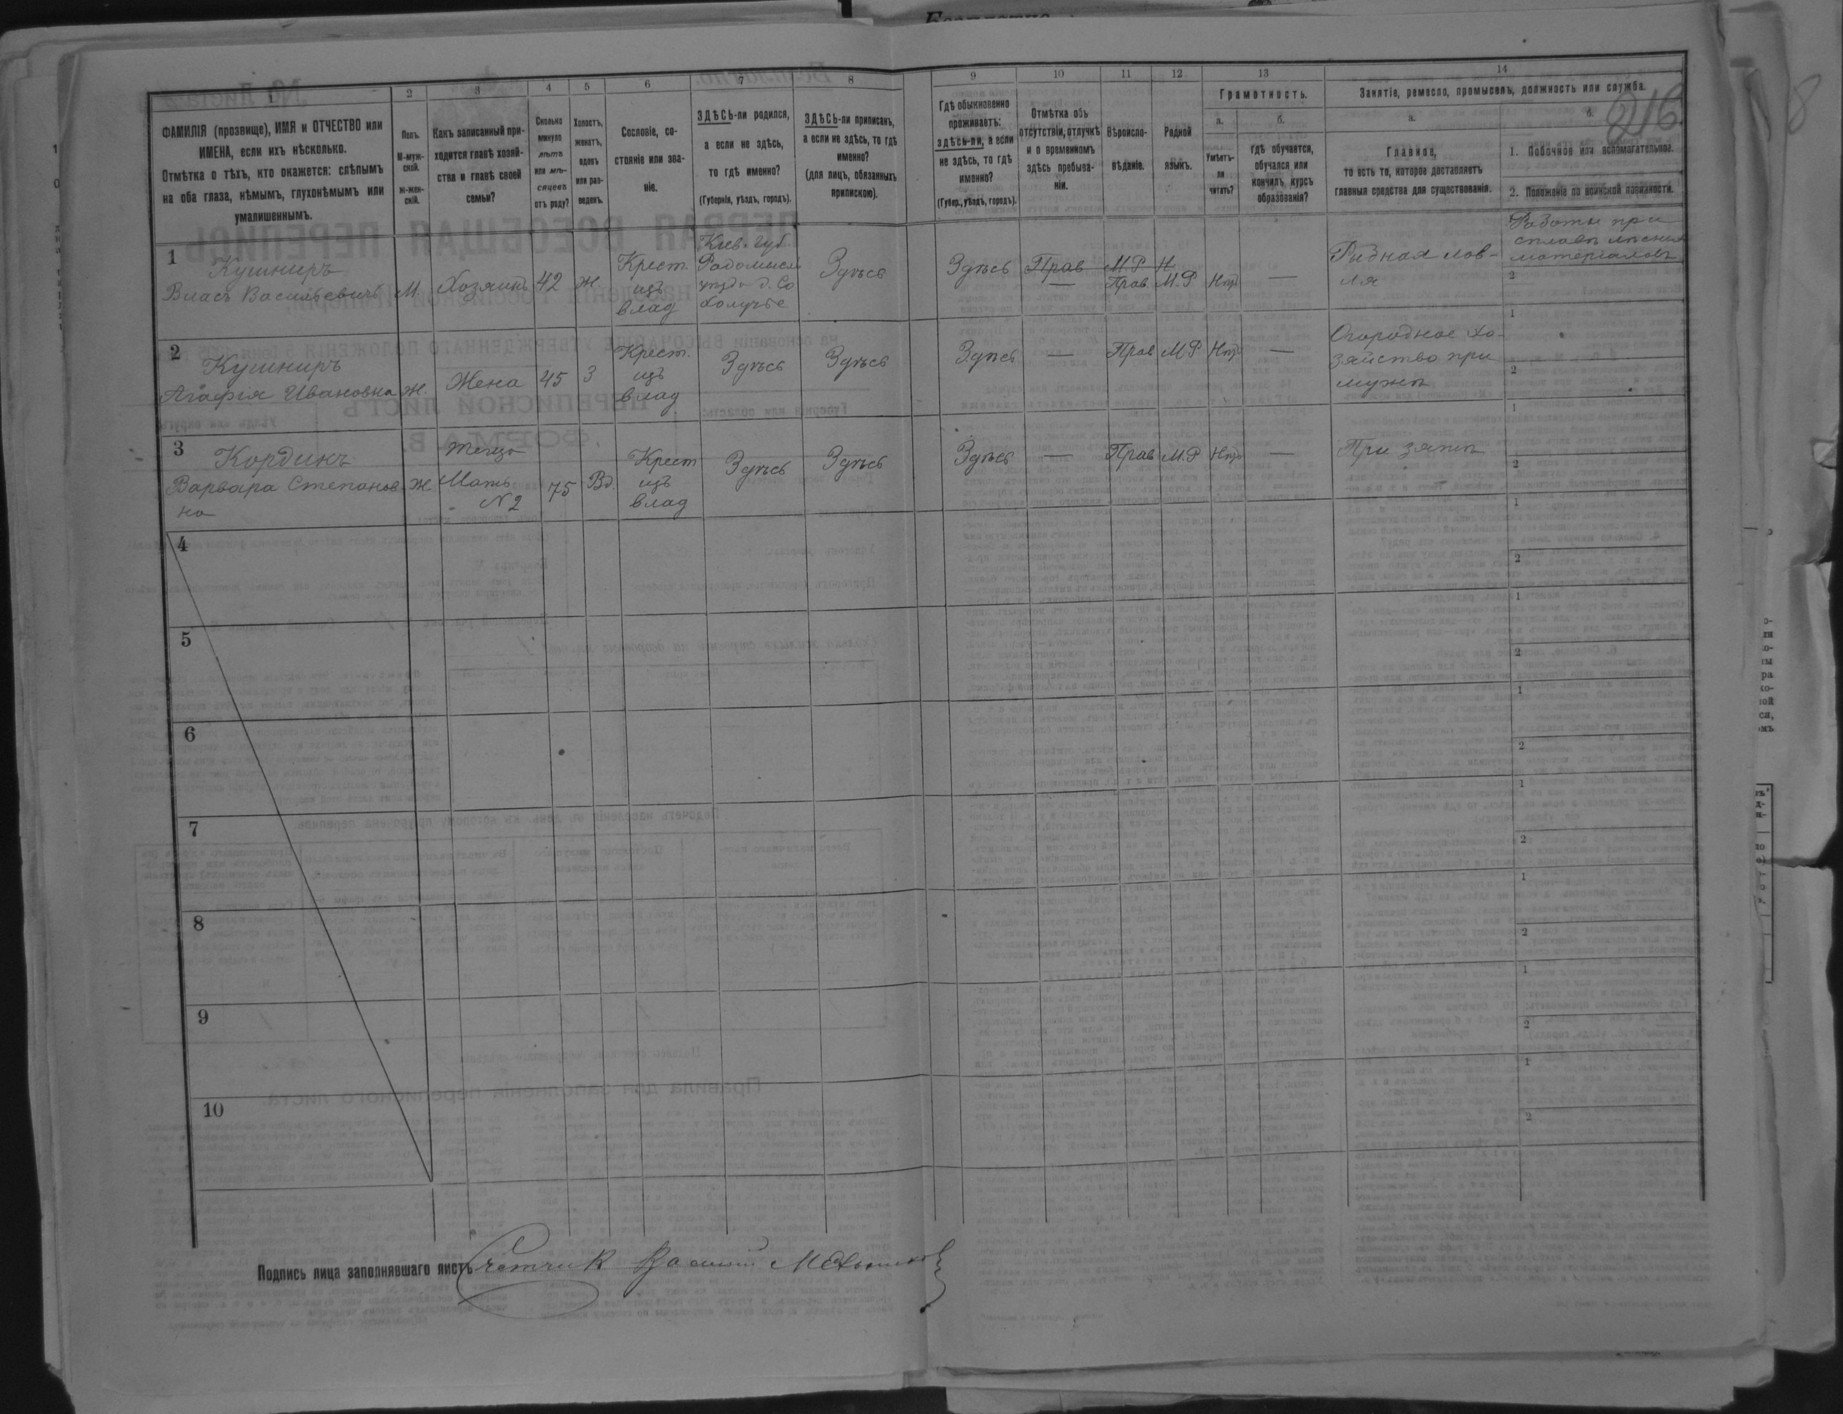 1
2
3
4
5
6
7
8
9
10
11
12
13
14
ФАМИЛІЯ (прозвище), ИМЯ и ОТЧЕСТВО или
ИМЕНА, если ихъ нѣсколько.
Отмѣтка о тѣхъ, кто окажется: слѣпымъ
на оба глаза, нѣмымъ, глухонѣмымъ или
умалишеннымъ.
Полъ.
М-муж-
ской.
Ж-жен-
скій.
Какъ записанный при-
ходится главѣ хозяй-
ства и главѣ своей
семьи?
Сколько
минуло
лѣтъ
или мѣ-
сяцевъ
отъ роду?
Холостъ,
женатъ,
вдовъ
или раз-
веденъ.
Сословіе, со-
стояніе или зва-
ніе.
ЗДѢСЬ-ли родился,
а если не здѣсь,
то гдѣ именно?
(Губернія, уѣздъ, городъ).
ЗДѢСЬ-ли приписанъ,
а если не здѣсь, то гдѣ
именно?
(для лицъ, обязанныхъ
припискою).
Гдѣ обыкновенно
проживаетъ:
здѣсь-ли, а если
не здѣсь, то гдѣ
именно?
(Губер., уѣздъ, городъ).
Отмѣтка объ
отсутствіи, отлучкѣ
и о временномъ
здѣсь пребыва-
ніи.
Вѣроиспо-
вѣданіе.
Родной
языкъ.
Грамотность.
а.
Умѣетъ-
ли
читать?
б.
Гдѣ обучается,
обучался или
кончилъ курсъ
образованія?
Занятіе, ремесло, промыселъ, должность или служба.
216
а.
Главное,
то есть то, которое доставляетъ
главныя средства для существованія.
б.
1. Побочное или вспомогательное.
2. Положеніе по воинской повинности.
1
Кушниръ
Власъ Васильевичъ
М
Хозяинъ
42
Ж
Крест.
изъ
влад
Кіев. губ.
Радомысл
уѣзд. д.
Здѣсь
Здѣсь
Прав
—
М.Р
Прав
Н
М.Р
Нѣтъ
—
Рибная лов-
ля
Работы при
сплавѣ лѣсныхъ
матеріаловъ
2
2
Кушниръ
Агафія Ивановна
Ж.
Жена
45
З
Крест.
изъ
влад
Здѣсь
Здѣсь
Здѣсь
—
Прав
М.Р
Нѣтъ
—
Огородное хо-
зяйство при
мужѣ
1
2
3
Кординъ
Варвара Степанов-
на
Ж.
Теща
Мать
№2
75
Вд.
Крест
изъ
влад
Здѣсь
Здѣсь
Здѣсь
—
Прав
М.Р
Нѣтъ
—
При зятѣ
1
2
4
1
2
5
1
2
6
1
2
7
1
2
8
1
2
9
1
2
10
1
2
Подпись лица заполнявшаго листъ Счетчикъ Василий